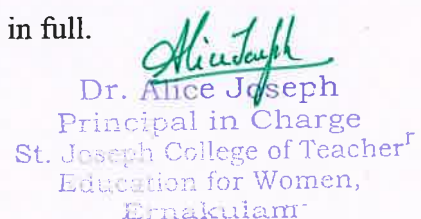 in full.
Alice Joseph
Dr. Alice Joseph
Principal in Charge
St. Joseph College of Teacher
Education for Women,
Ernakulam